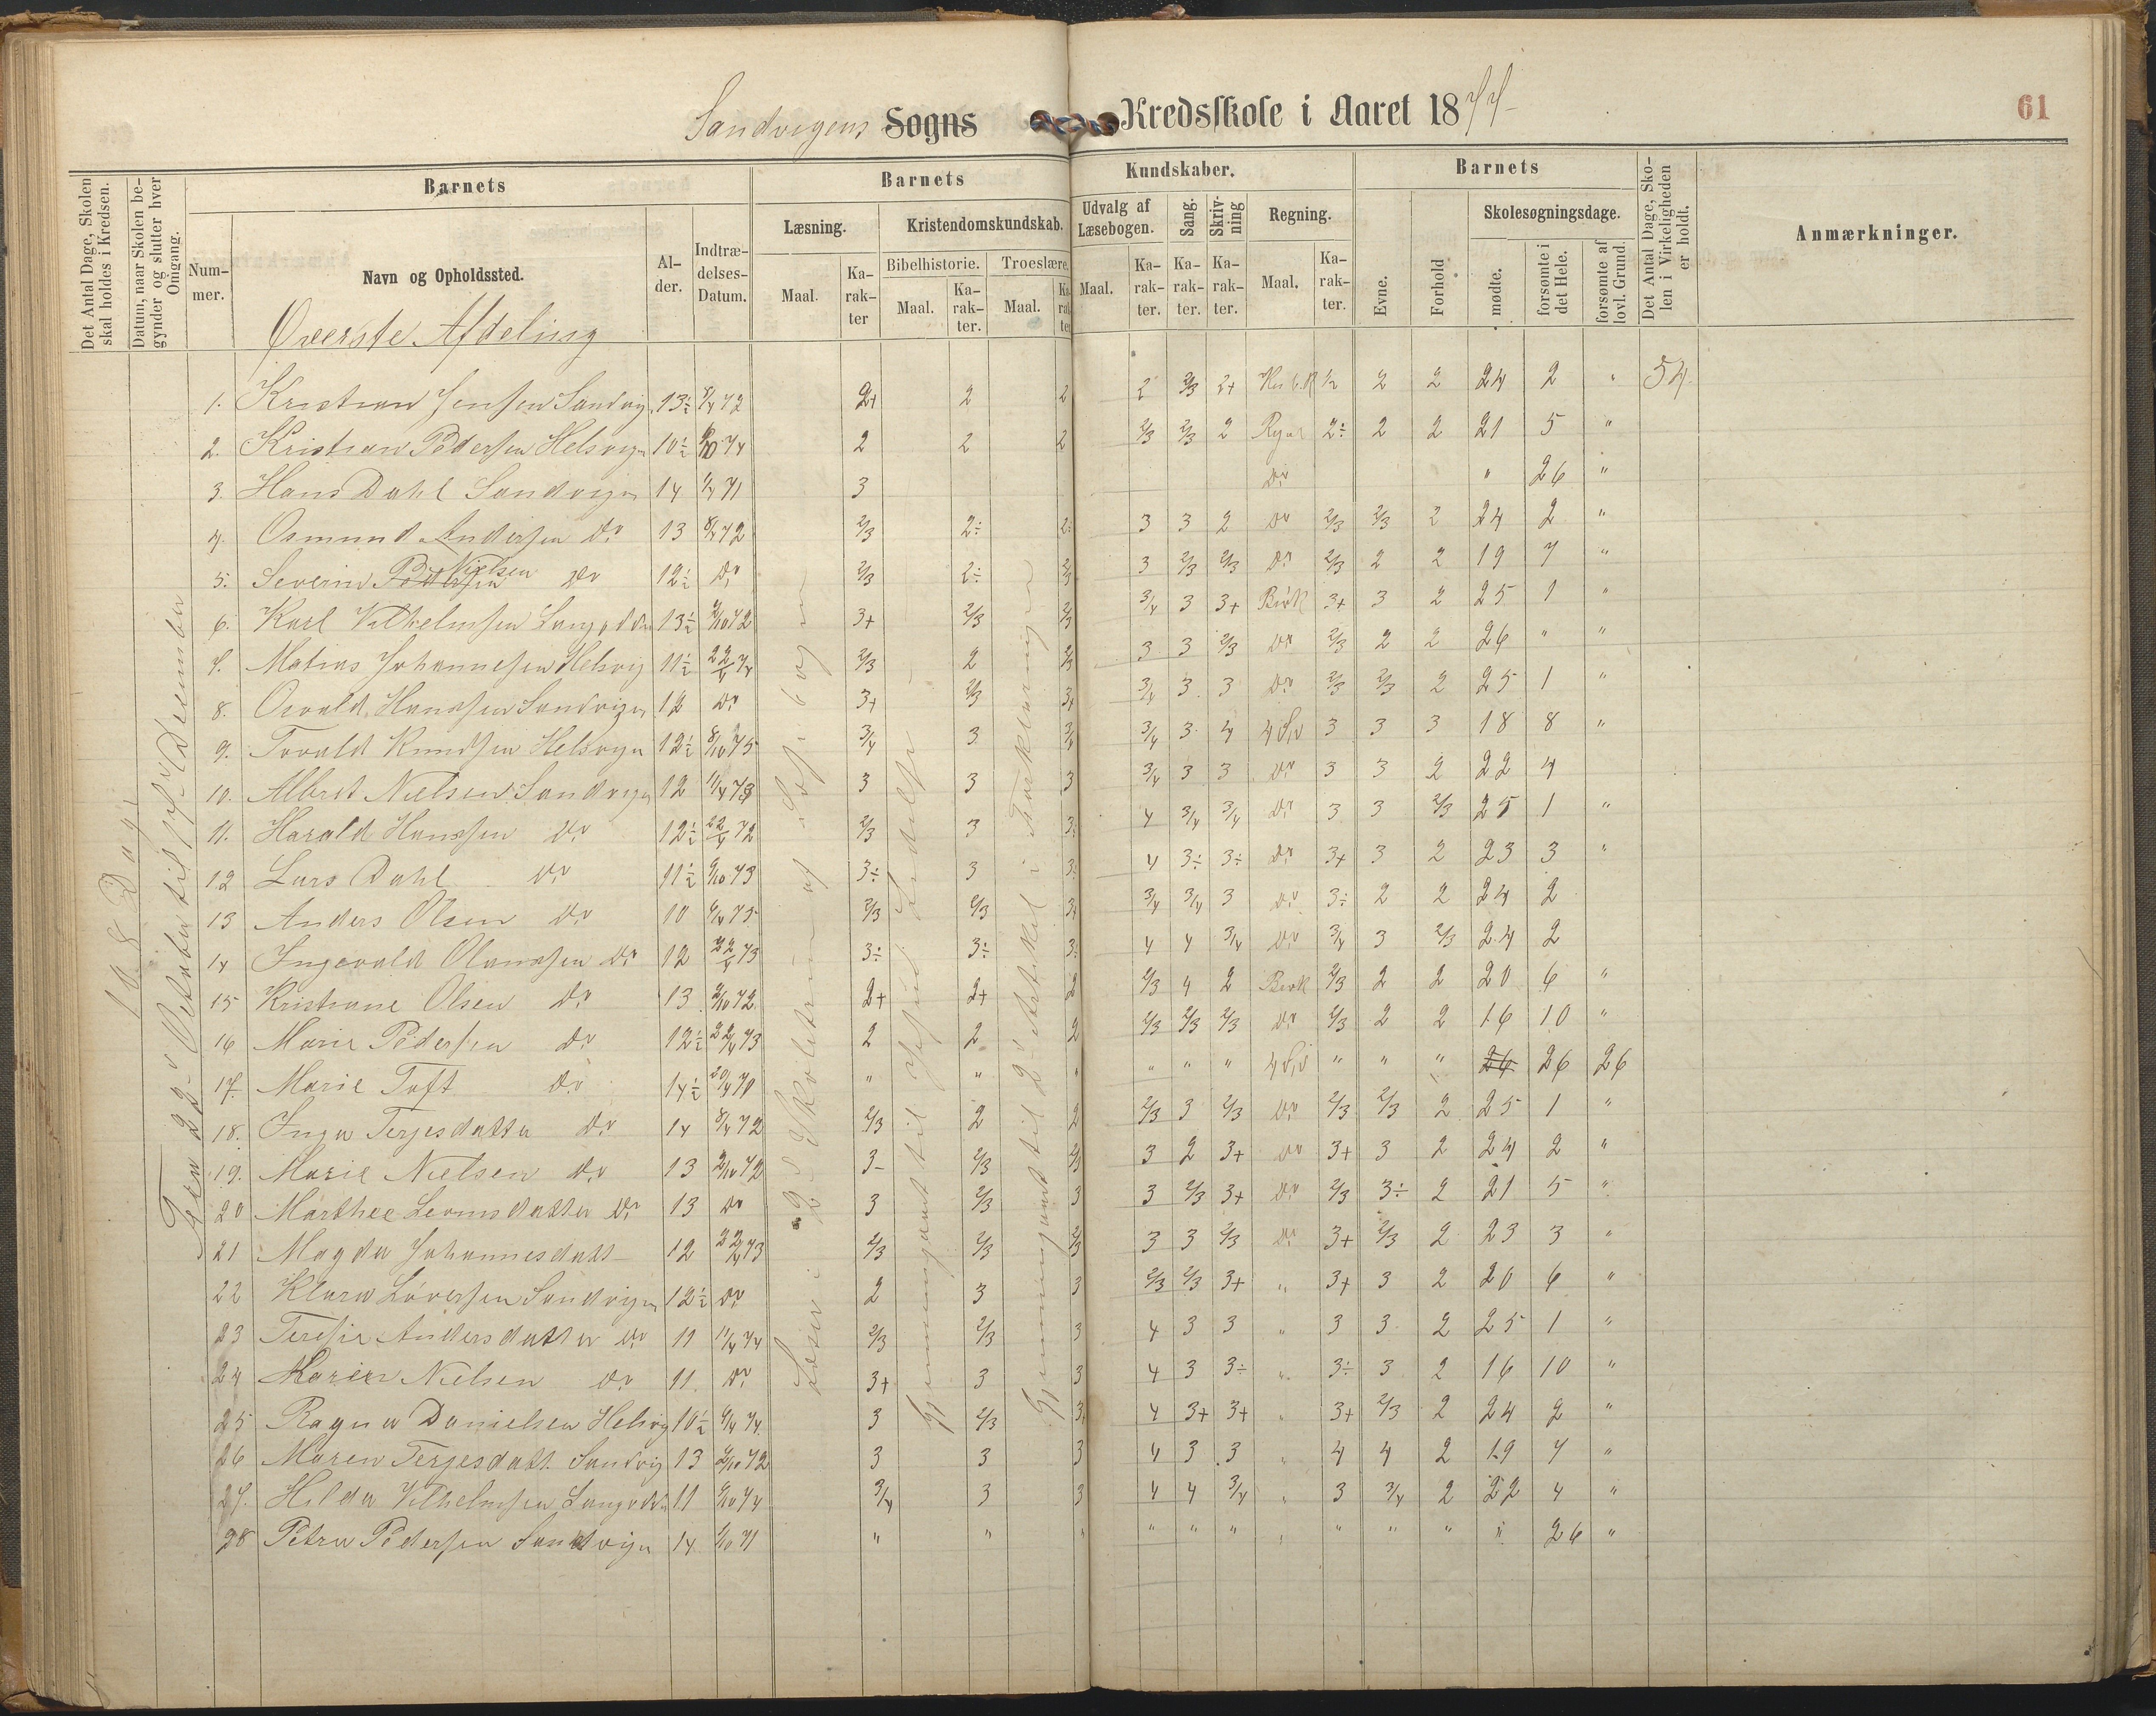 Sandvigens Sogns Kredsskole i Aaret 1877
61
Det Antal Dage, Skolen skal holdes i Kredsen.
Datum, naar Skolen begynder og slutter hver Omgang.
Barnets
Nummer.
Navn og Opholdssted.
Alder.
Indtrædelses-Datum.
Barnets Kundskaber.
Læsning.
Maal.
Karakter
Kristendomskundskab.
Bibelhistorie.
Maal.
Karakter.
Troeslære.
Maal.
Karakter
Udvalg af Læsebogen.
Maal.
Karakter.
Sang.
Karakter.
Skrivning
Karakter.
Regning.
Maal.
Karakter.
Barnets
Evne.
Forhold
Skolesøgningsdage.
mødte.
forsømte i det Hele.
forsømte af lovl. Grund.
Det Antal Dage, Skolen i Virkeligheden er holdt.
Anmærkninger.
Øverste Afdeling
108 Dage
Fra 22de Oktober til December
Læser i 2den Skoletrin af Læsebogen
Gjennemgaaet til
Gjennemgaaet til 2den Artikel i Forklaringen
1. Kristian Jensen Sandvig. 13½ 8/4 72 2+ 2 2 2 2/3 2+ 1/2 2 2 24 2 " 54
2. Kristian Pedersen Helsvign 10½ 74 2 2 2 2/3 2/3 2 2÷ 2 2 21 5 "
3. Hans Dahl Sandvign 14 71 3 Do " 26 "
4. Osmund Andersen Do 13 8/4 72 2/3 2÷ 2÷ 3 3 2 Do 2/3 2/3 2 24 2 "
5. Severin Pedersen Nielsen Do 12½ Do 2/3 2÷ 2/3 3 2/3 2/3 Do 2/3 2 2 19 7 "
6. Karl Vilhelmsen 13½ 72 3+ 2/3 2/3 3/4 3 3+ Brøk 3+ 3 2 25 1 "
7. Matias Johannesen Helsvig 11½ 22/4 74 2/3 2 2/3 3 3 2/3 Do 2/3 2 2 26 " "
8. Osvald Hansen Sandvigen 12 Do 3+ 2/3 3+ 3/4 3 3 Do 2/3 2/3 2 25 1 "
9. Tovald Knudsen Helsvign 12½ 8/10 75 3/4 3 3/4 3/4 3 4 3 3 3 18 8 "
10. Albert Nielsen Sandvign 12 11/4 73 3 3 3 3/4 3 3 Do 3 3 2 22 4
11. Harald Hansen Do 12½ 22/4 72 2/3 3 3÷ 4 3/4 3/4 Do 3 3 2/3 25 1 "
12 Lars Dahl Do 11½ 73 3÷ 3 3÷ 4 3÷ 3÷ Do 3+ 3 2 23 3 "
13 Anders Olsen Do 10 75 2/3 2/3 3+ 3/4 3/4 3 Do 3÷ 2 2 24 2
14 Ingevald Olausen Do 12 22/4 73 3÷ 3÷ 3÷ 4 4 3/4 Do 3/4 3 2/3 24 2
15 Kristiane Olsen Do 13 72 2+ 2+ 2 2/3 4 2 Brøk 2/3 2 2 20 6 "
16 Marie Pedersen Do 12½ 22/4 73 2 2 2 2/3 2/3 2/3 Do 2/3 2 2 16 10 "
17. Marie Toft Do 14½ 20/4 70 " " " " " " " " " 26 26 26
18. Inga Terjesdatter Do 14 8/4 72 2/3 2 2 2/3 3 2/3 Do 2/3 2/3 2 25 1 "
19. Marie Nielsen Do 13 72 3- 2/3 2/3 3 2 3+ Do 3+ 3 2 24 2 "
20 Marthee Do 13 Do 3 2/3 3 3 2/3 3+ Do 2/3 3÷ 2 21 5 "
21 Magda Johannesdatt 12 22/4 73 2/3 2/3 2/3 3 3 2/3 Do 3+ 2/3 2 23 3 "
22 Klara Sandvign 12½ Do 2 3 3 2/3 2/3 3+ " 3+ 3 2 20 6 "
23 Teresie Andersdatter Do 11 11/4 74 2/3 2/3 3 4 3 3 " 3 3 2 25 1 "
24 Karen Nielsen Do 11 Do 3+ 3 3 4 3 3÷ " 3÷ 3 2 16 10 "
25 Ragna Danielsen Helsvig 10½ 74 3 2/3 3+ 4 3+ 3+ " 3+ 2/3 2 24 2 "
26 Maren Terjesdatt Sandvig 13 72 3 3 3 4 3 3 " 4 4 2 19 7 "
27. Hilda Vilhelmsen 11 74 3/4 3 3 4 4 3/4 " 3 3/4 2 22 4 "
28 Petra Pedersen Sandvign 14 71 " " " " " " " " " " " 26 "